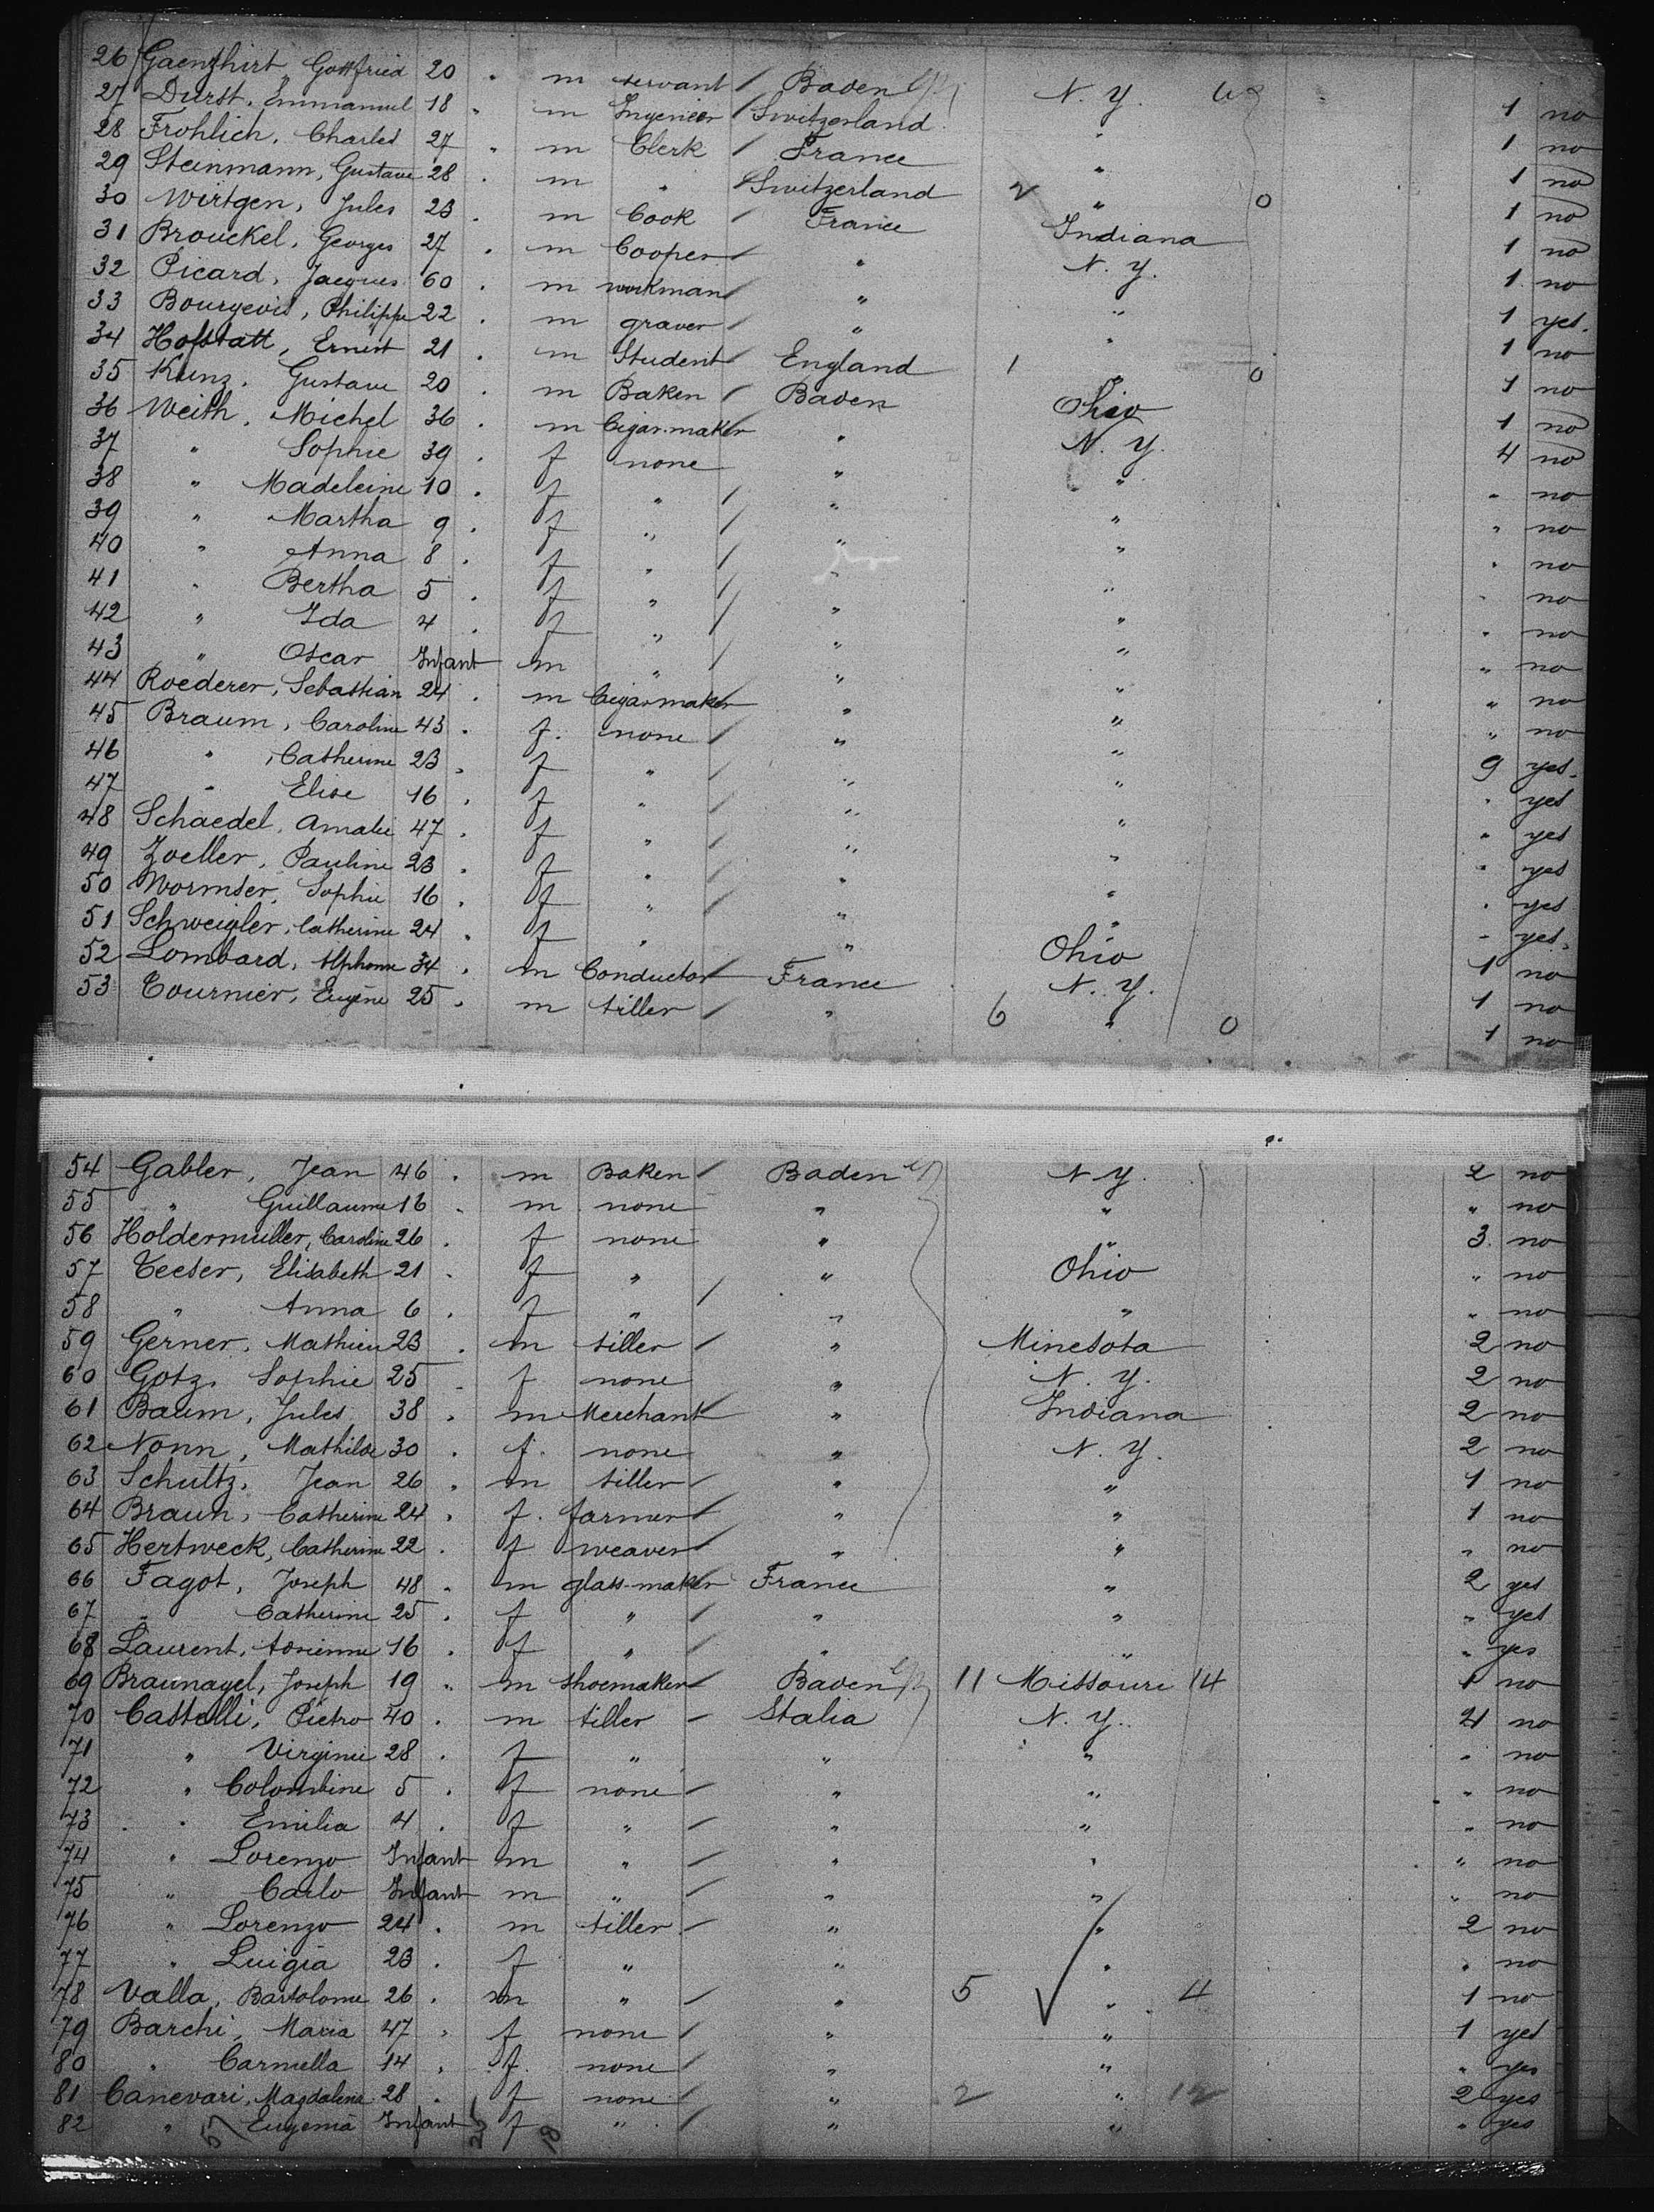 26 Gaenzhirt, Gottfried 20 " m servant / Baden N. Y. 1 no
27 Durst, Emmanuel 18 " m Ingenieer / Switzerland " 1 no
28 Frohlich, Charles 27 " m Clerk / France " 1 no
29 Steinmann, Gustave 28 " m " / Switzerland 2 " 0 1 no
30 Wirtgen, Jules 23 " m Cook / France Indiana 1 no
31 Brouckel, Georges 27 " m Cooper / " N. Y. 1 no
32 Picard, Jacques 60 " m workman / " " 1 yes.
33 Bourgeois, Philippe 22 " m graver / " " 1 no
34 Hofstatt, Ernest 21 " m Student / England 1 " 0 1 no
35 Kunz, Gustave 20 " m Baker / Baden Ohio 1 no
36 Weith, Michel 36 " m Cigar-maker / " N. Y. 4 no
37 " Sophie 39 " f none " " " no
38 " Madeleine 10 " f " / " " " no
39 " Martha 9 " f " / " " " no
40 " Anna 8 " f " / " " " no
41 " Bertha 5 " f " / " " " no
42 " Ida 4 " f " / " " " no
43 " Oscar Infant m " / " " " no
44 Roederer, Sebastian 24 " m Cigar-maker / " " " no
45 Braum, Caroline 43 " f. none / " " 9 yes.
46 " Catherine 23 " f " / " " " yes
47 " Elise 16 " f " / " " " yes
48 Schaedel, Amalie 47 " f " / " " " yes
49 Zoeller, Pauline 23 " f " / " " " yes
50 Wormser, Sophie 16 " f " / " " " yes.
51 Schweigler, Catherine 24 " f " " Ohio 1 no
52 Lombard, Alphonse 34 " m Conductor / France N. Y. 1 no
53 Tournier, Eugène 25 " m tiller / " 6 " 0 1 no
54 Gabler, Jean 46 " m Baker / Baden N. Y. 2 no
55 " Guillaume 16 " m none " " " no
56 Holdermuller, Caroline 26 " f none " " 3. no
57 Teeser, Elisabeth 21 " f " " Ohio " no
58 " Anna 6 " f " / " " " no
59 Gerner, Mathieu 23 " m tiller / " Minesota 2 no
60 Gotz, Sophie 25 " f none " N. Y. 2 no
61 Baum, Jules 38 " m Merchant / " Indiana 2 no
62 Nonn, Mathilde 30 " f. none " N. Y. 2 no
63 Schultz, Jean 26 " m tiller / " " 1 no
64 Braun, Catherine 24 " f. farmer / " " 1 no
65 Hertweck, Catherine 22 " f weaver / " " " no
66 Fagot, Joseph 48 " m glass-maker / France " 2 yes
67 " Catherine 25 " f " / " " " yes
68 Laurent, Adrienne 16 " f " / " " " yes
69 Braunagel, Joseph 19 " m shoemaker / Baden 11 Missouri 14 1 no
70 Castelli, Pietro 40 " m tiller / Italia N. Y. 4 no
71 " Virginie 28 " f " " " " no
72 " Colombine 5 " f none / " " " no
73 " Emilia 4 " f " / " " " no
74 " Lorenzo Infant m " / " " " no
75 " Carlo Infant m " / " " " no
76 " Lorenzo 24 " m tiller / " " 2 no
77 " Luigia 23 " f " " " " no
78 Valla, Bartolome 26 " m " / " 5 " 4 1 no
79 Barchi, Maria 47 " f none / " " 1 yes
80 " Carmella 14 " f. none / " " " yes
81 Canevari, Magdalena 28 " f none / " 2 " 12 2 yes
82 " Eugenia Infant f " / " " " yes